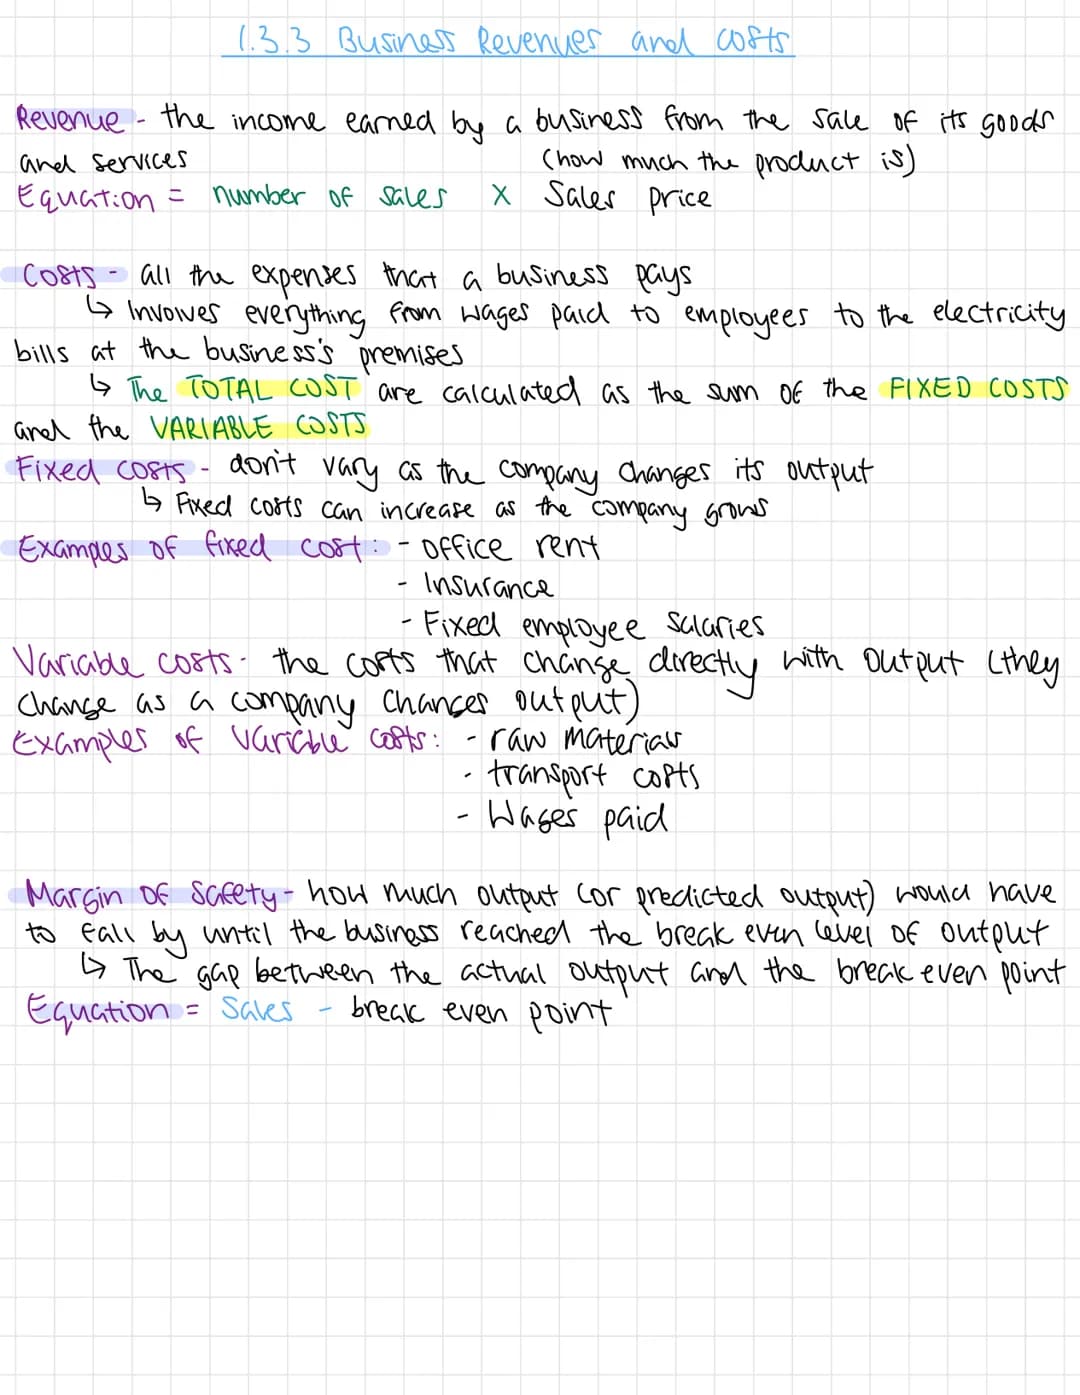 1.3.3 Business Revenues and costs
Revenue - the income earned by a business from the sale of its goods
and services (how much the product is)
Equation = number of sales x Sales price
Costs - all the expenses that a business pays
↳ Involves everything from wages paid to employees to the electricity
bills at the business's premises
↳ The TOTAL COST are calculated as the sum of the FIXED COSTS
and the VARIABLE COSTS
Fixed costs - don't vary as the company changes its output
↳ Fixed costs can increase as the company grows
Examples of fixed cost: - office rent
- Insurance
- Fixed employee salaries
Variable costs - the costs that change directly with output (they
change as a company changes output)
Examples of variable costs: - raw materials
- transport costs
- Wages paid
Margin of Safety - how much output (or predicted output) would have
to fall by until the business reached the break even level of output
↳ The gap between the actual output and the break even point
Equation = Sales - break even point